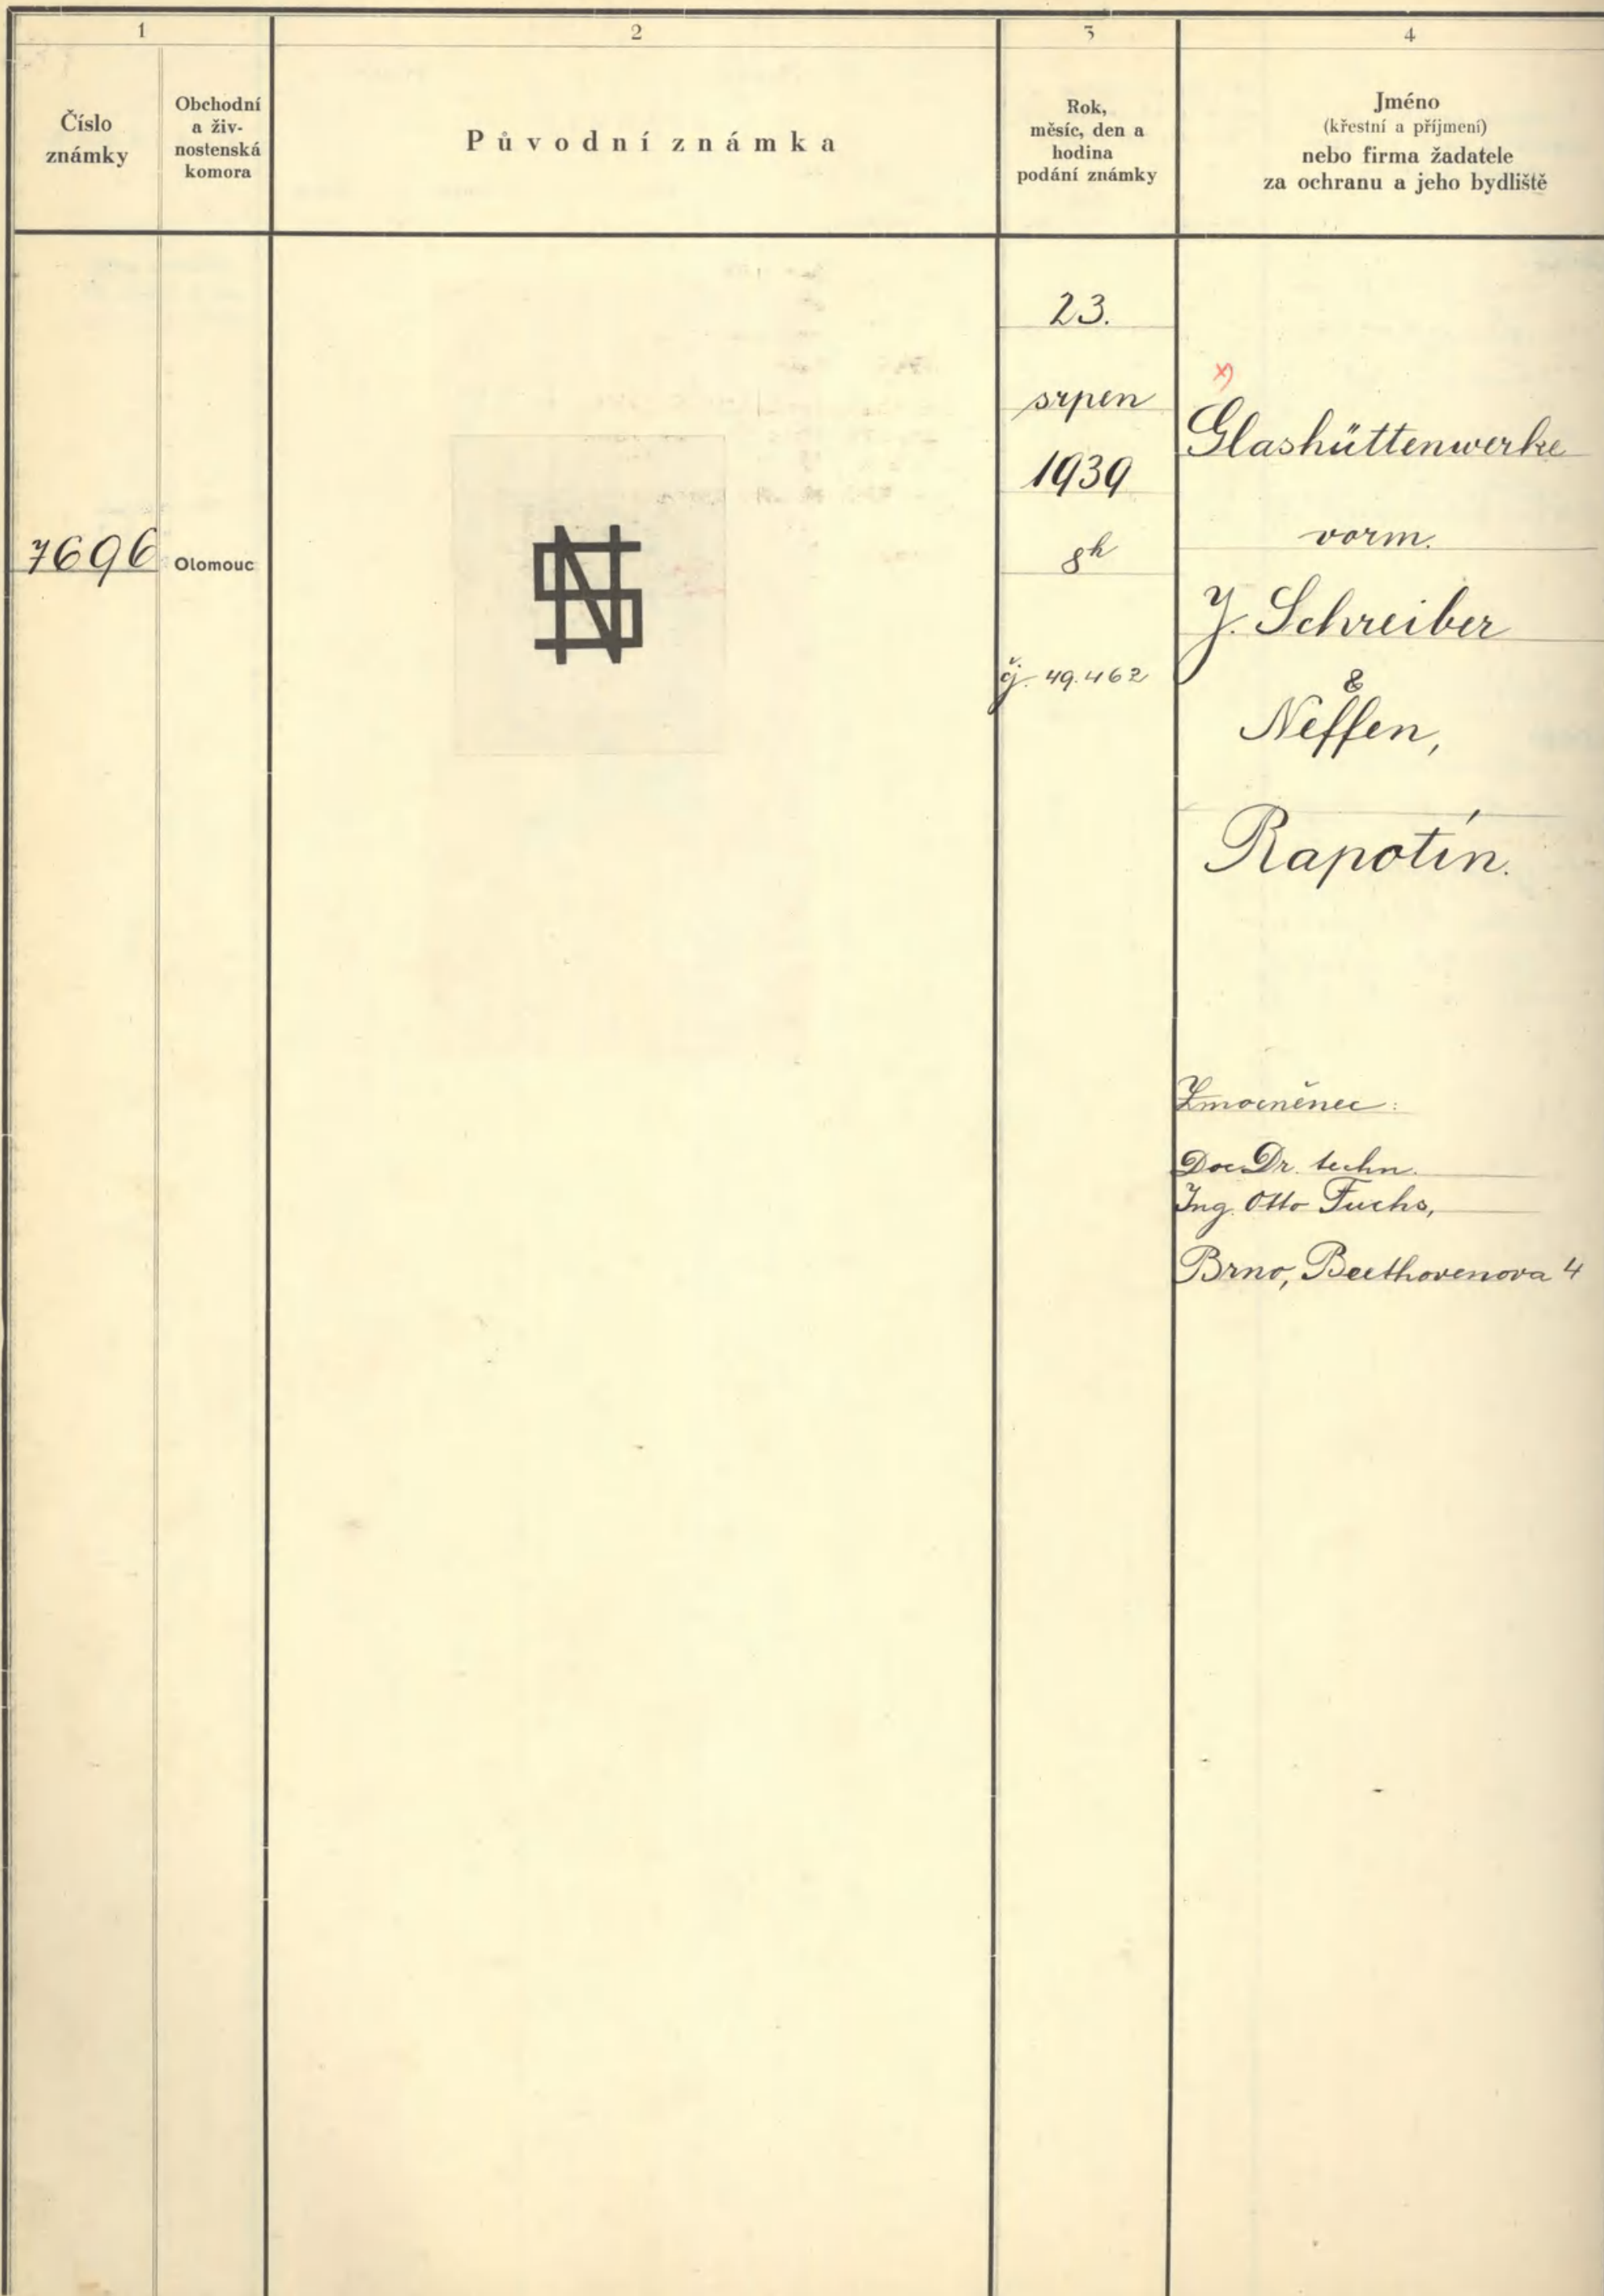 1
2
3
4
Číslo
známky
Obchodní
a živ-
nostenská
komora
Původní známka
Rok,
měsíc, den a
hodina
podání známky
Jméno
(křestní a příjmení)
nebo firma žadatele
za ochranu a jeho bydliště
7696
Olomouc
SN
23.
srpen
1939
8h
čj. 49.462
x)
Glashüttenwerke
vorm.
J. Schreiber
&
Neffen,
Rapotín.
Zmocněnec:
Doc Dr. techn.
Ing. Otto Fuchs,
Brno, Beethovenova 4